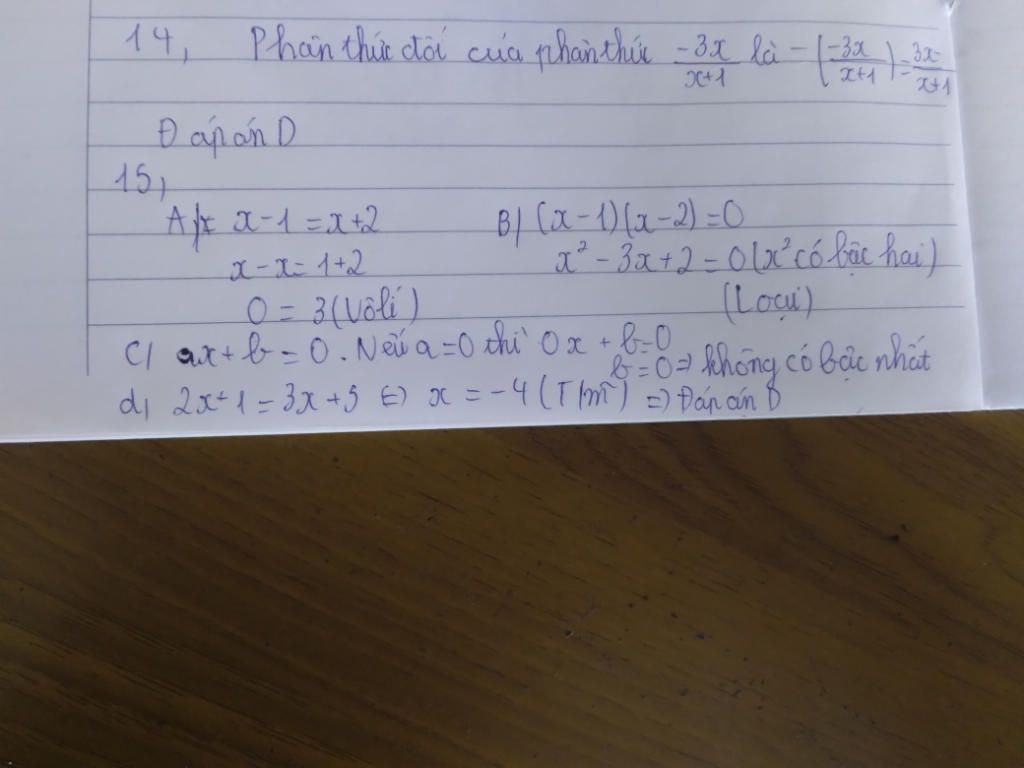 14, Phân thức đối của phân thức -3x/x+1 là -(-3x/x+1) = 3x/x+1
Đáp án D
15,
A, x-1 = x+2 B, (x-1)(x-2) = 0
x-x = 1+2 x² - 3x + 2 = 0 (x² có bậc hai)
0 = 3 (Vô lí) (Loại)
C, ax + b = 0. Nếu a = 0 thì 0x + b = 0
b = 0 => không có bậc nhất
d, 2x+1 = 3x+5 <=> x = -4 (T/m) => Đáp án D